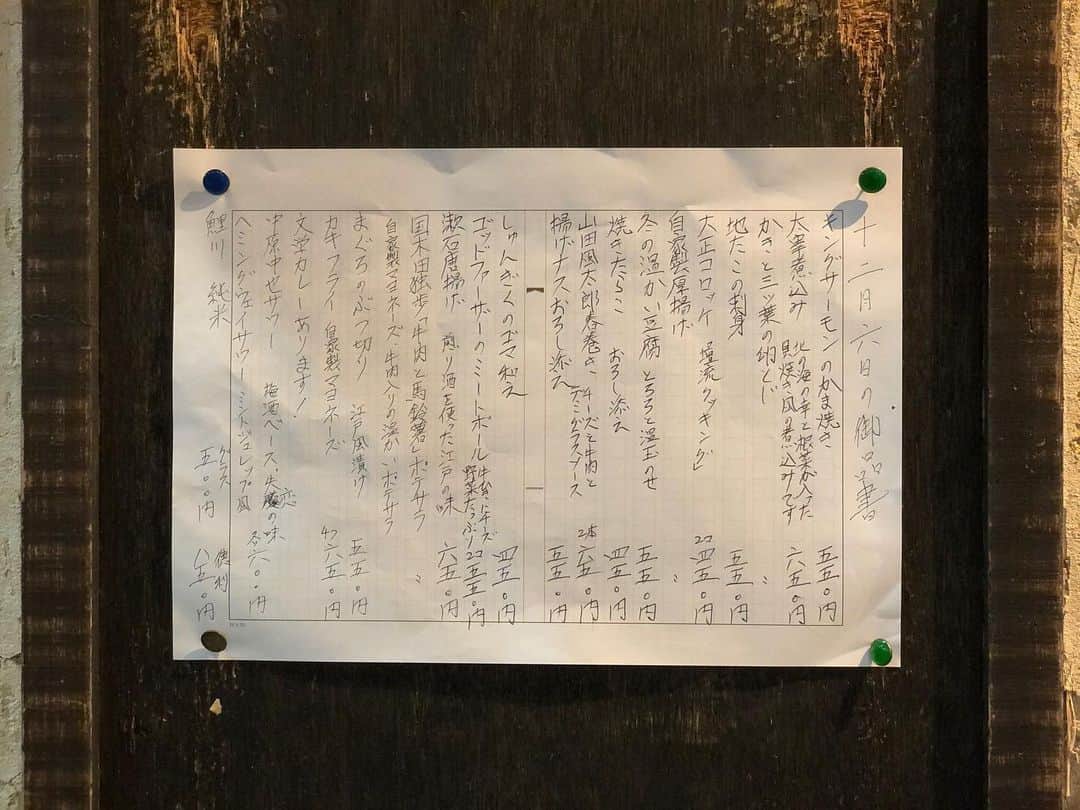 十二月六日の御品書
キングサーモンのかま焼き 五五〇円
太宰煮込み 北の海の幸と根菜が入った貝焼き風の煮込みです 六五〇円
かきと三ッ葉の卵とじ 〃
地たこの刺身 五五〇円
大正コロッケ 「塩流クッキング」 2コ四五〇円
自家製厚揚げ 〃
冬の温かい豆腐 とろろと温玉のせ 五五〇円
焼きたらこ おろし添え 四五〇円
山田風太郎春巻き、チーズと牛肉とデミグラスソース 2本 六五〇円
揚げナスおろし添え 五五〇円
しゅんぎくのゴマ和え 四五〇円
ゴッドファーザーのミートボール 牛肉にチーズ 野菜たっぷり 2コ五五〇円
漱石唐揚げ 煎り酒を使った江戸の味 六五〇円
国木田独歩「牛肉と馬鈴薯」ポテサラ
自家製マヨネーズ・牛肉入りの温かいポテサラ 〃
まぐろのぶつ切り 江戸風漬け 五五〇円
カキフライ 自家製マヨネーズ 4コ六五〇円
文学カレーあります!
中原中也サワー 梅酒ベース、失恋の味
ヘミングウェイサワー ミントジュレップ風 各六〇〇円
鯉川 純米 グラス 五〇〇円 徳利 八五〇円